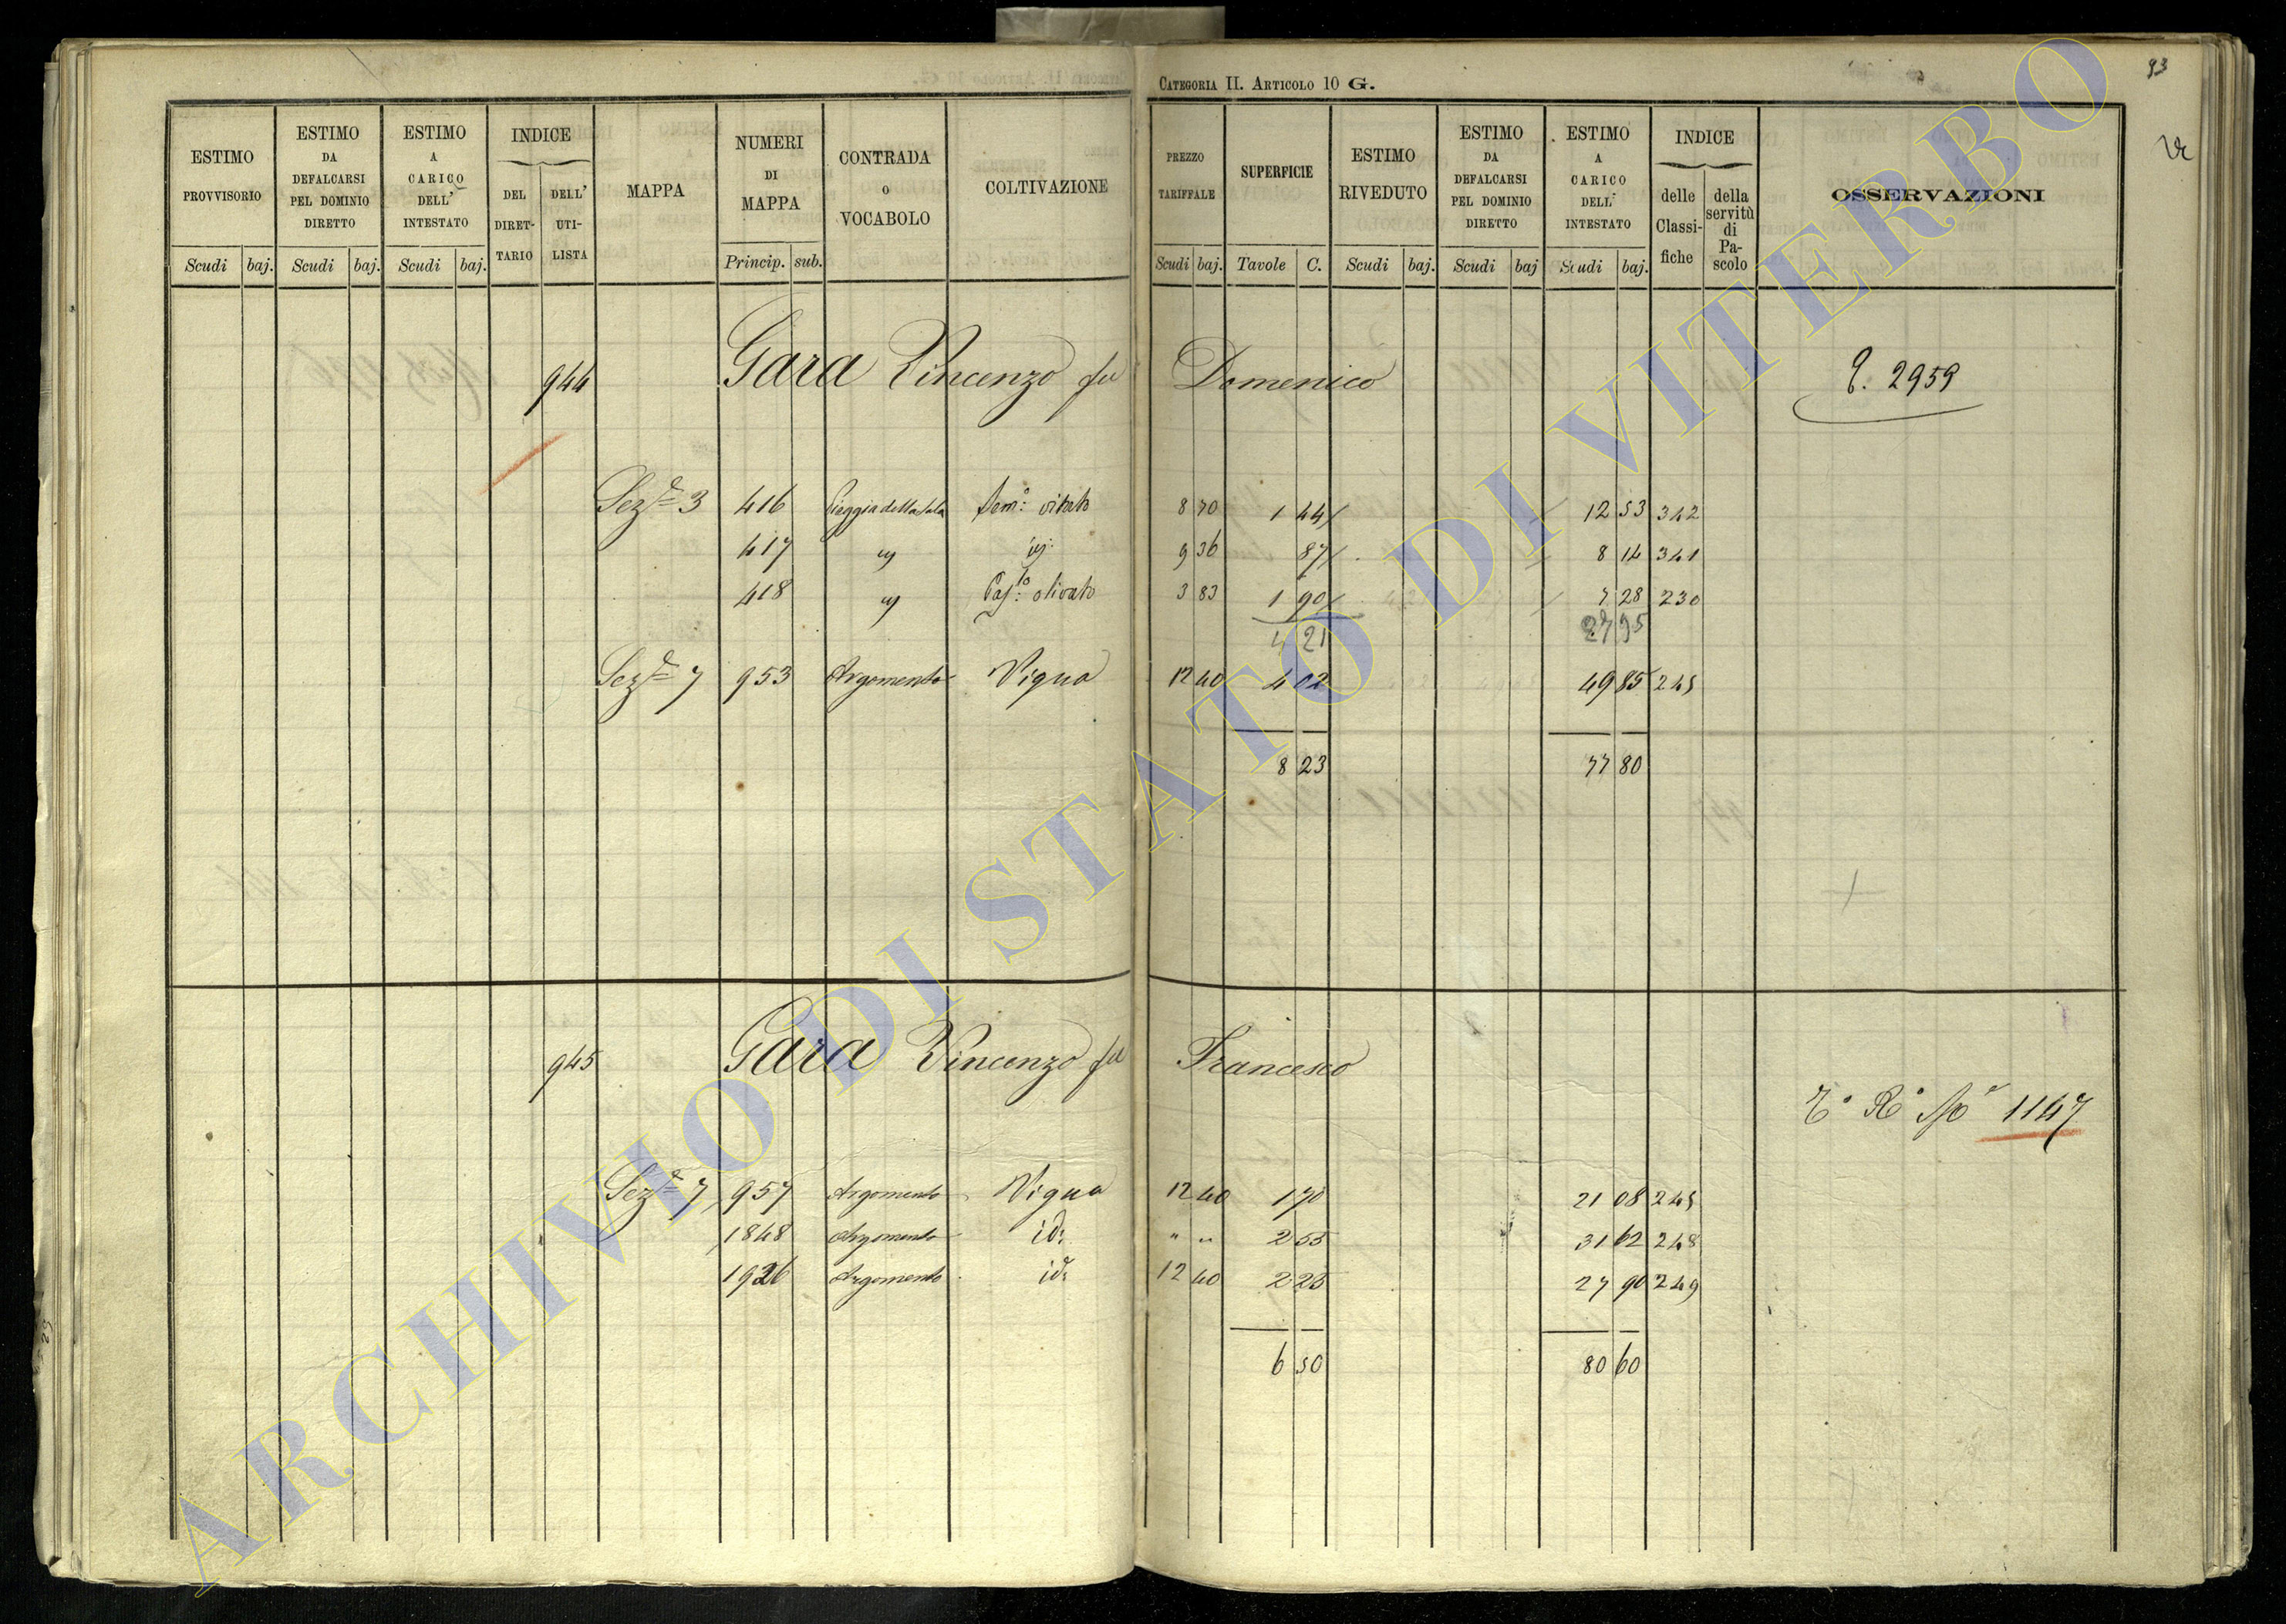 CATEGORIA II. ARTICOLO 10 G.
93
ESTIMO PROVVISORIO
ESTIMO DA DEFALCARSI PEL DOMINIO DIRETTO
ESTIMO A CARICO DELL' INTESTATO
INDICE
DEL DIRETTARIO
DELL' UTILISTA
MAPPA
NUMERI DI MAPPA
CONTRADA O VOCABOLO
COLTIVAZIONE
PREZZO TARIFFALE
SUPERFICIE
ESTIMO RIVEDUTO
ESTIMO DA DEFALCARSI PEL DOMINIO DIRETTO
ESTIMO A CARICO DELL' INTESTATO
INDICE
delle Classifiche
della servitù di Pascolo
OSSERVAZIONI
Scudi baj. Scudi baj. Scudi baj. Princip. sub. Scudi baj. Tavole C. Scudi baj. Scudi baj Scudi baj.
944 Gara Vincenzo fu Domenico 2959
Sez.e 3 416 Sem.o vitato 8 70 1 44 12 53 342
417 " id: 9 36 87 8 14 341
418 " Pas.lo olivato 3 83 1 90 7 28 230
4 21 27 95
Sez.e 7 953 Argomento Vigna 12 40 4 02 49 85 245
8 23 77 80
945 Gara Vincenzo fu Francesco
1147
Sez.e 7 957 Argomento Vigna 12 40 1 70 21 08 245
1848 Argomento id: " " 2 55 31 62 248
1926 Argomento id: 12 40 2 25 27 90 249
6 50 80 60
ARCHIVIO DI STATO DI VITERBO